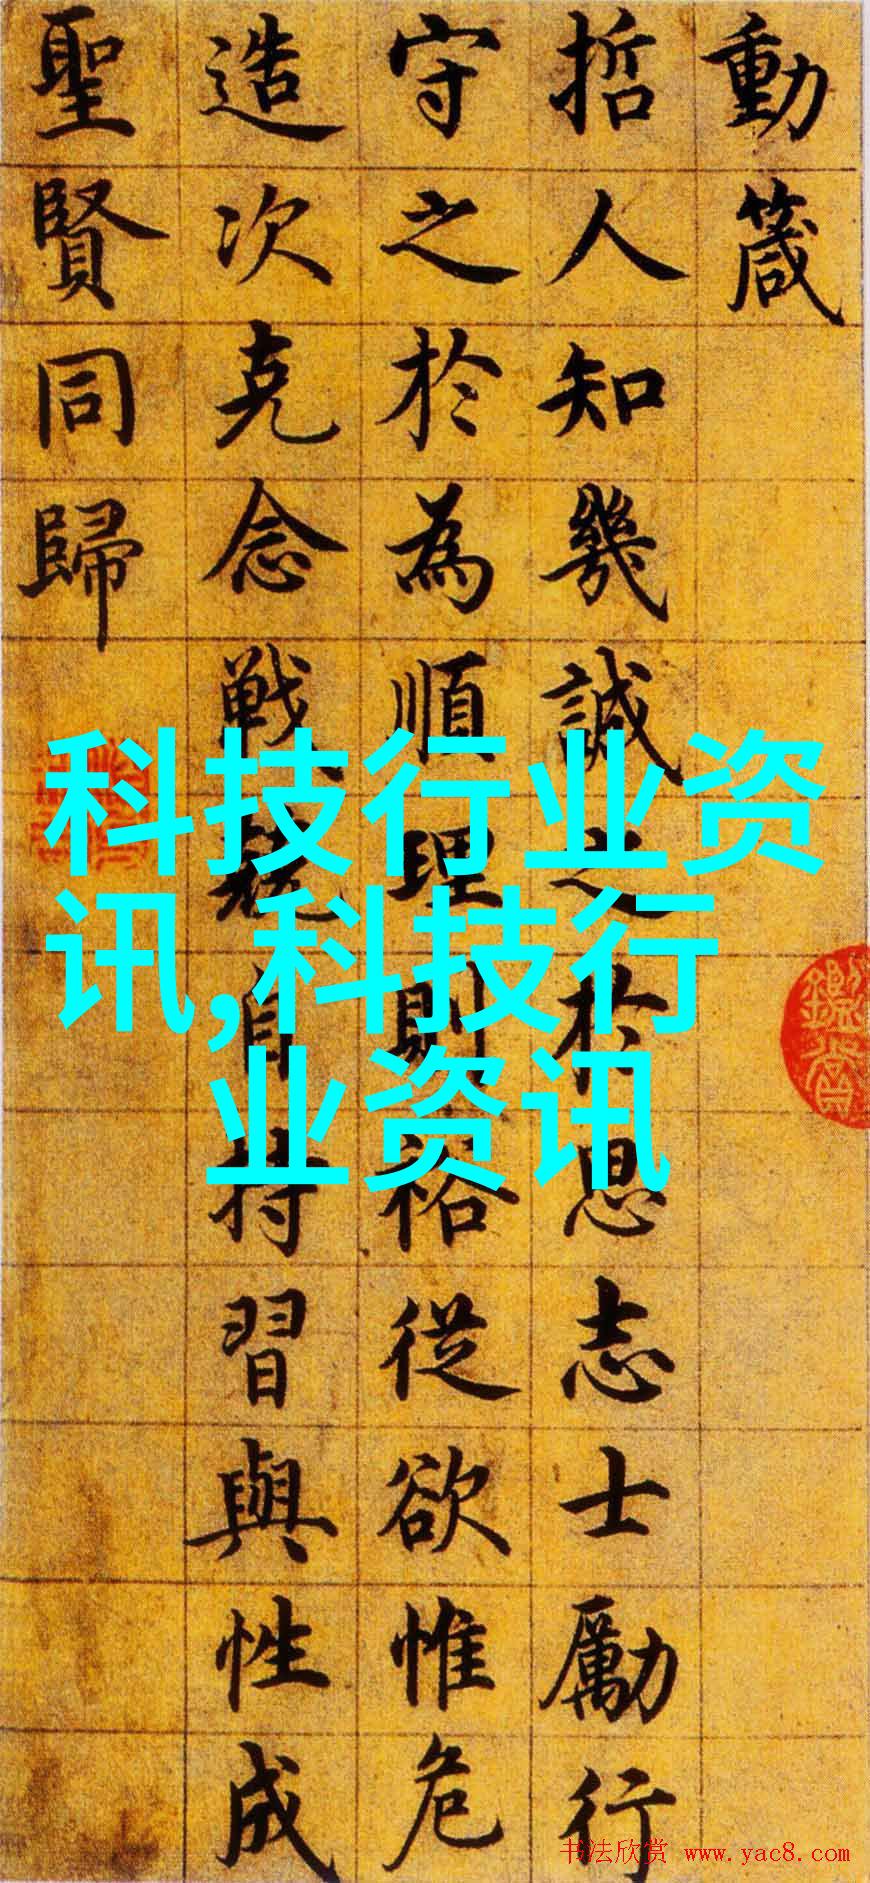 動箴
哲人知幾誠之於思志士勵行
守之於為順理則裕從欲惟危
造次克念戰兢自持習與性成
聖賢同歸
科技行业资
讯,科技行
业资讯
书法欣赏 www.yac8.com